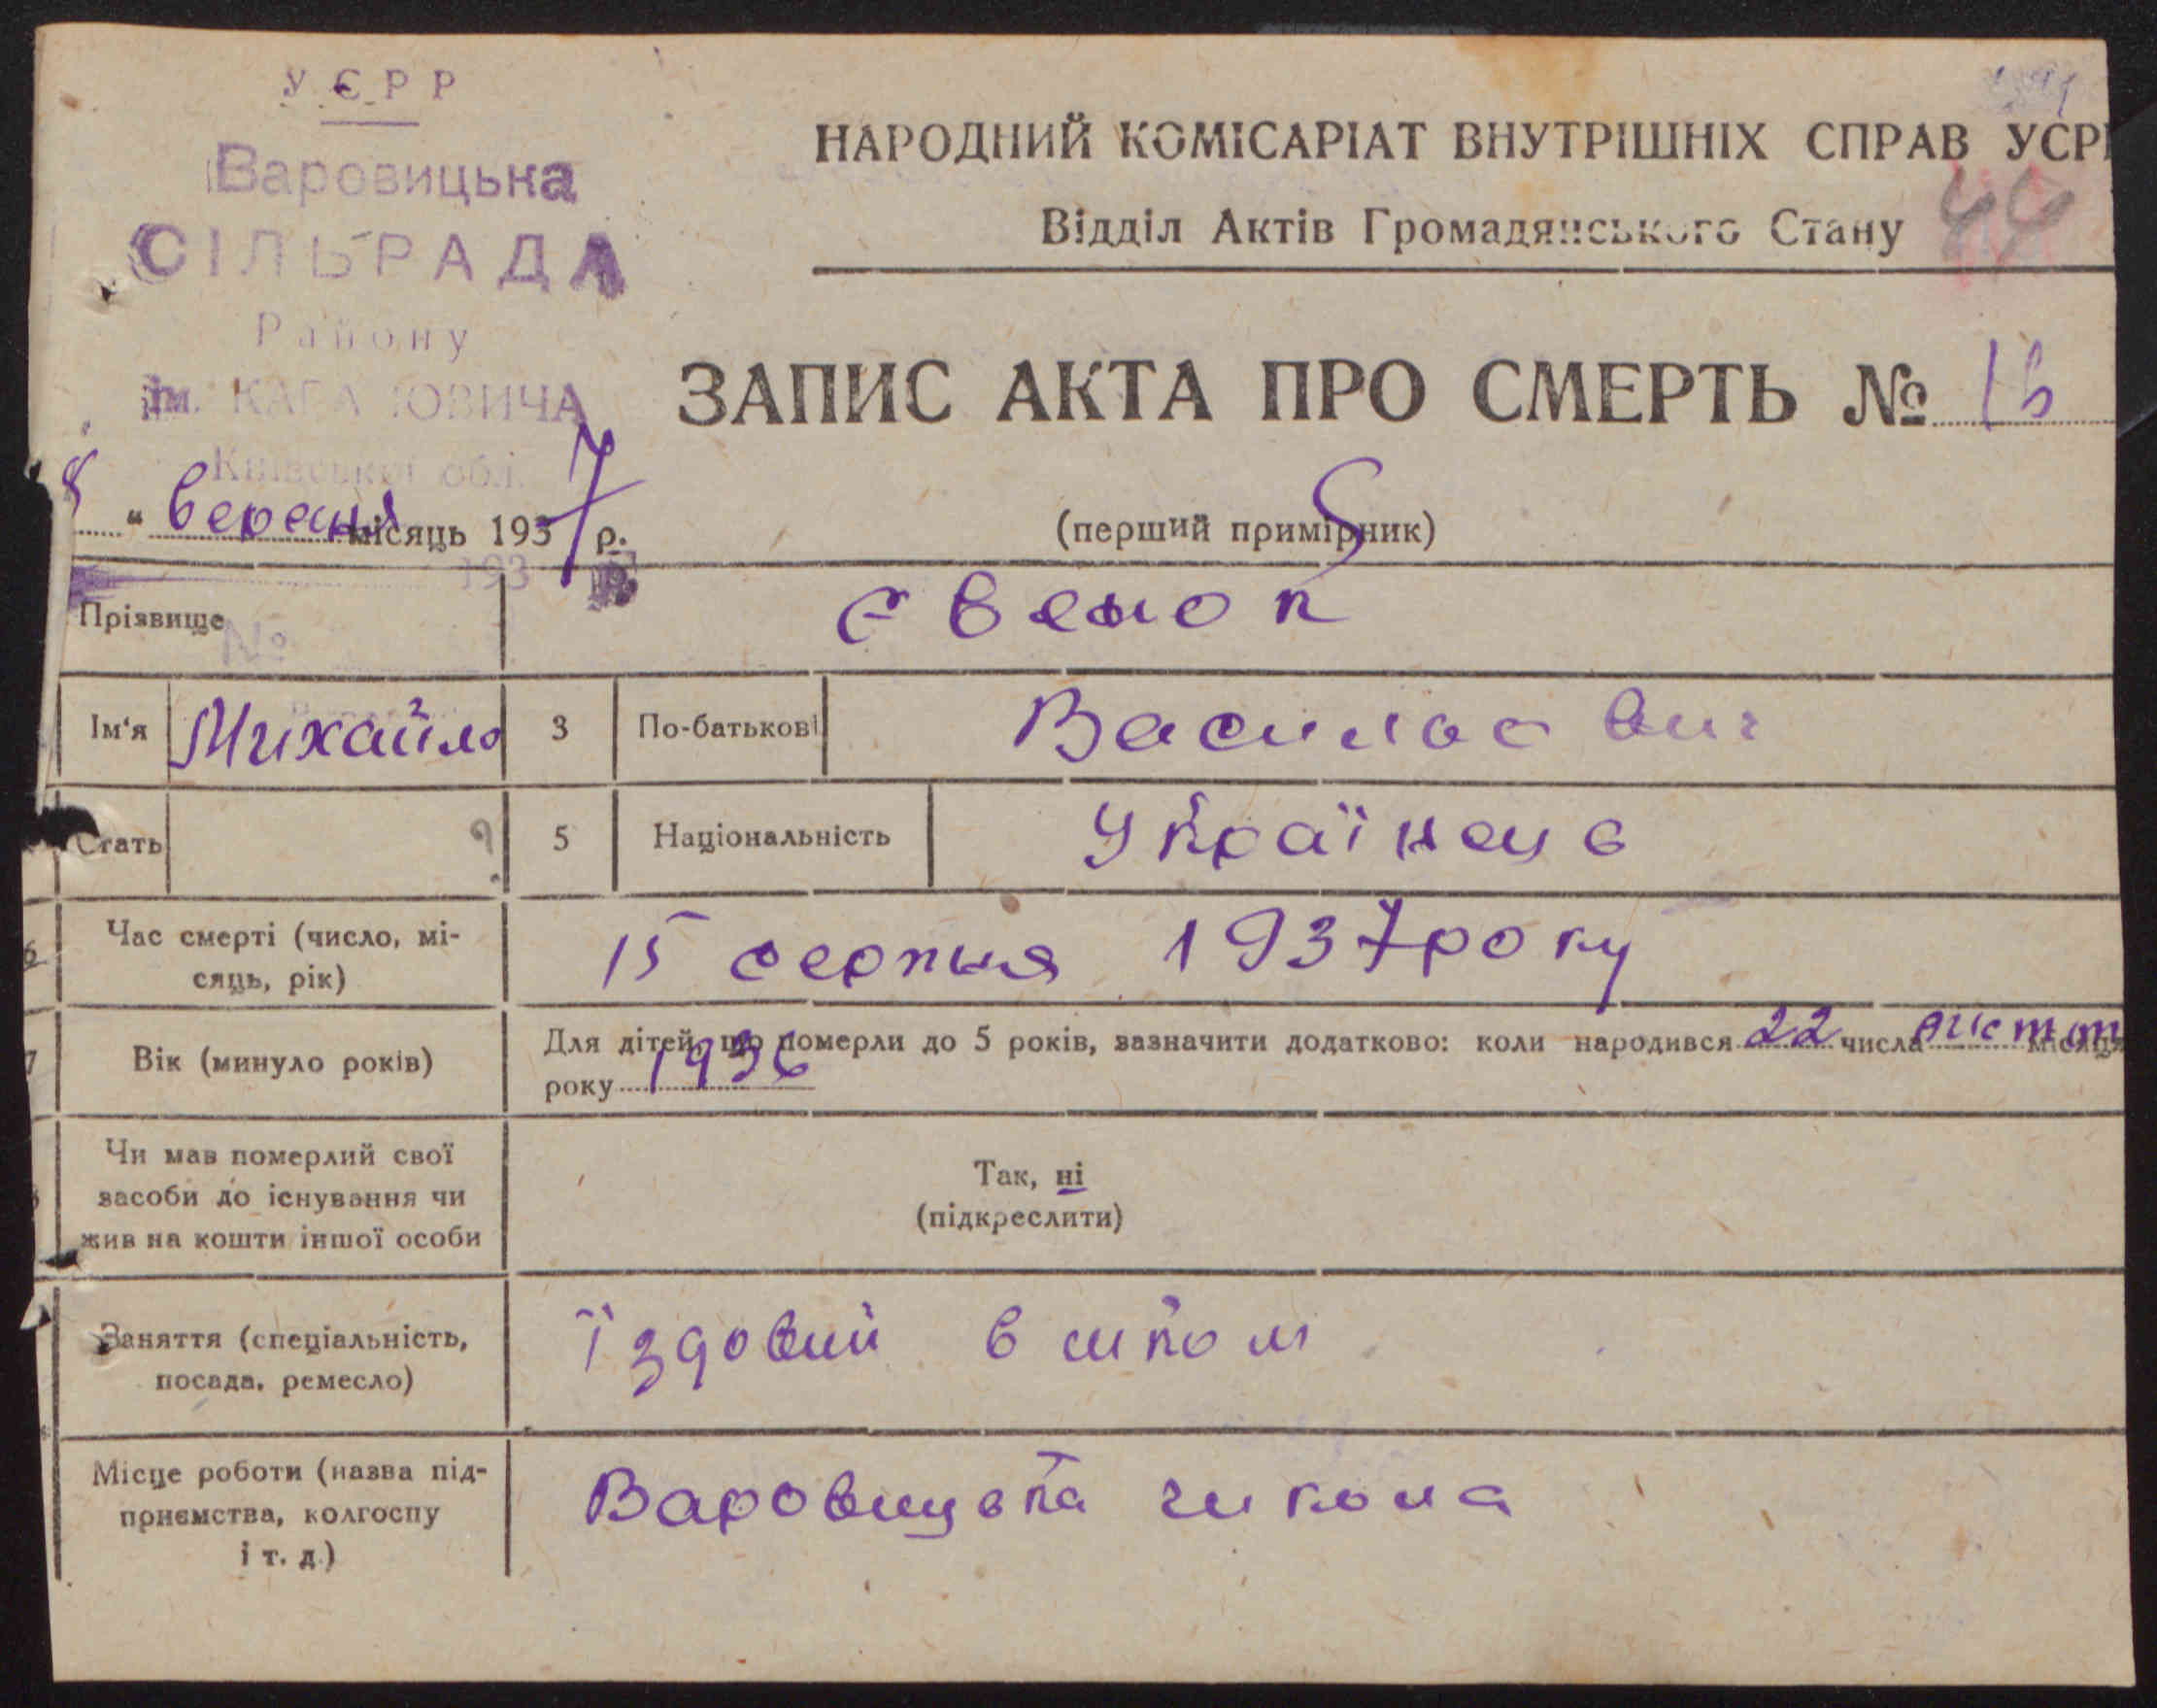 УЄРР
Варовицька
СІЛЬРАДА
Району
ім. КАГАНОВИЧА
Київської обл.
НАРОДНИЙ КОМІСАРІАТ ВНУТРІШНІХ СПРАВ УСР
Відділ Актів Громадянського Стану
44
ЗАПИС АКТА ПРО СМЕРТЬ №
(перший примірник)
8 " вересня місяць 1937 р.
193 р.
№
Прізвище Євенок
Ім'я Михайло 3 По-батькові Васильович
Стать 5 Національність Українець
6 Час смерті (число, мі-
сяць, рік) 15 серпня 1937 року
7 Вік (минуло років) Для дітей, що померли до 5 років, зазначити додатково: коли народився 22 числа листоп місяця
року 1936
Чи мав померлий свої
засоби до існування чи
жив на кошти іншої особи
Так, ні
(підкреслити)
Заняття (спеціальність,
посада, ремесло) Їздовий в школі
Місце роботи (назва під-
приємства, колгоспу
і т. д.) Варовицька школа